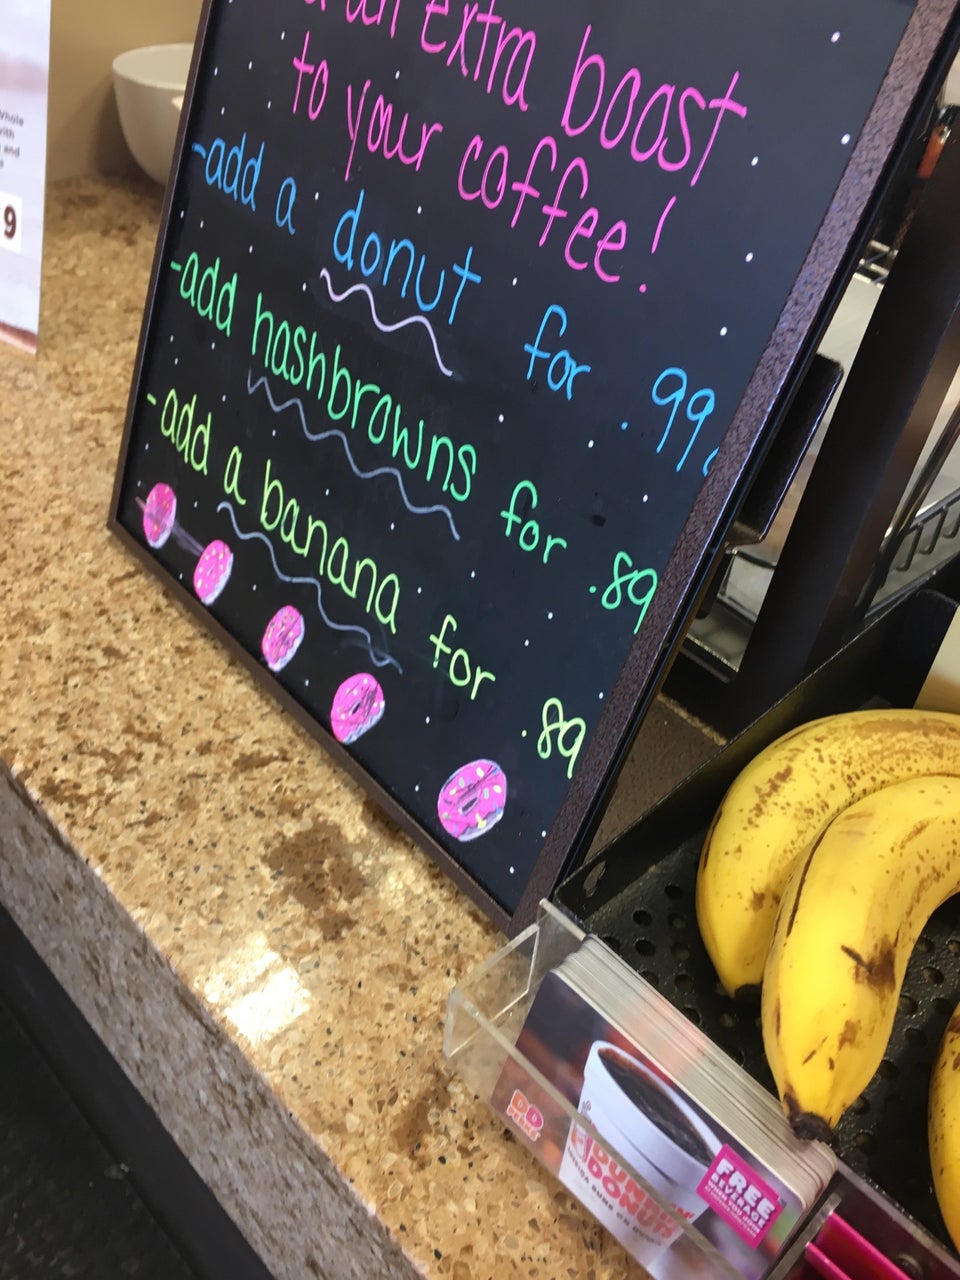 an extra boost
to your coffee!
-add a donut for .99
-add hashbrowns for .89
-add a banana for .89
Whole
with
and
9
DD
PERKS
DUNKIN'
DONUTS
AMERICA RUNS ON DUNKIN'
FREE
BEVERAGE
WHEN YOU JOIN